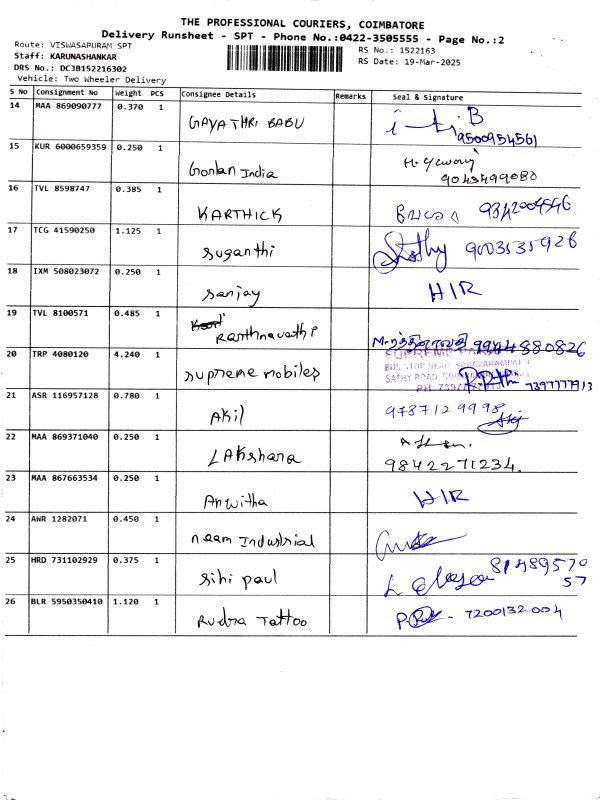 THE PROFESSIONAL COURIERS, COIMBATORE
Delivery Runsheet - SPT - Phone No.:0422-3505555 - Page No.:2
Route: VISWASAPURAM SPT
Staff: KARUNASHANKAR
DRS No.: DCJB152216302
Vehicle: Two Wheeler Delivery
RS No.: 1522163
RS Date: 19-Mar-2025
S No Consignment No Weight PCS Consignee Details Remarks Seal & Signature
14 MAA 869090777 0.370 1 GAYATHRI BABU 9500954561
15 KUR 6000659359 0.250 1 Gontan India 9043499080
16 TVL 8598747 0.385 1 KARTHICK 9342004546
17 TCG 41590250 1.125 1 suganthi Sathy 9003535926
18 IXM 508023072 0.250 1 sanjay H/R
19 TVL 8100571 0.485 1 Rasthnavathi 9944880826
20 TRP 4080120 4.240 1 supreme mobiles SUPREME 7397777913
21 ASR 116957128 0.780 1 AKil 9787129998
22 MAA 869371040 0.250 1 LAKshana 9842271234.
23 MAA 867663534 0.250 1 Anwitha H/R
24 AWR 1282071 0.450 1 naam Industrial
25 HRD 731102929 0.375 1 sihi paul 8148957057
26 BLR 5950350410 1.120 1 Rudra Tattoo 7200132004